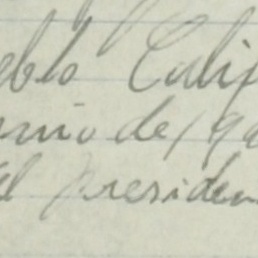 eblo Calip
nio de 19
al Presiden